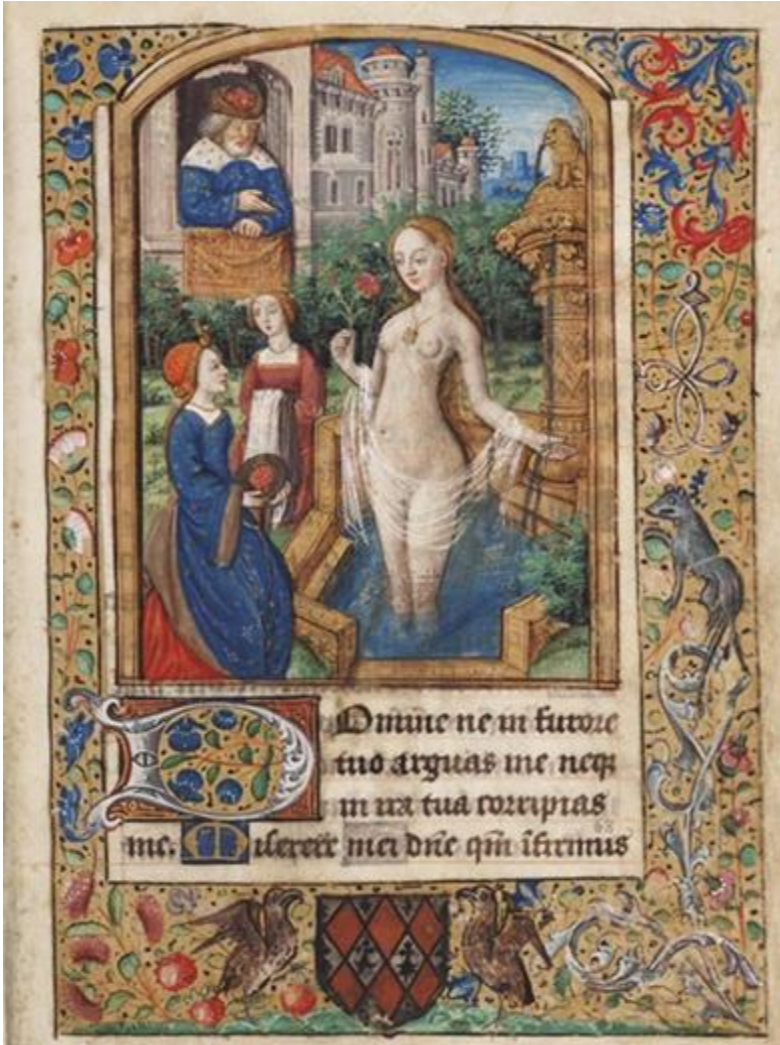 Domine ne in furore
tuo arguas me neqꝫ
in ira tua corripias
me. Miserere mei dñe qm̃ ĩfirmus